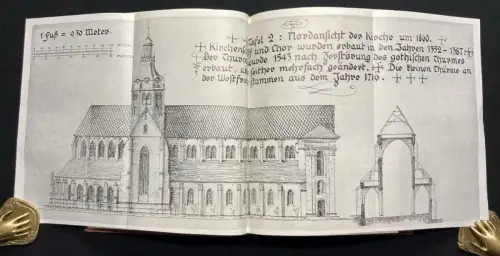 1 Fuß = 0,30 Meter.
Tafel 2 : Nordansicht der Kirche um 1890.
Kirchenschiff und Chor wurden erbaut in den Jahren 1352 - 1387.
Der Thurm wurde 1543 nach Zerstörung des gothischen Thurmes
erbaut, seither mehrfach geändert. Die kleinen Thürme an
der Westfront stammen aus dem Jahre 1716.